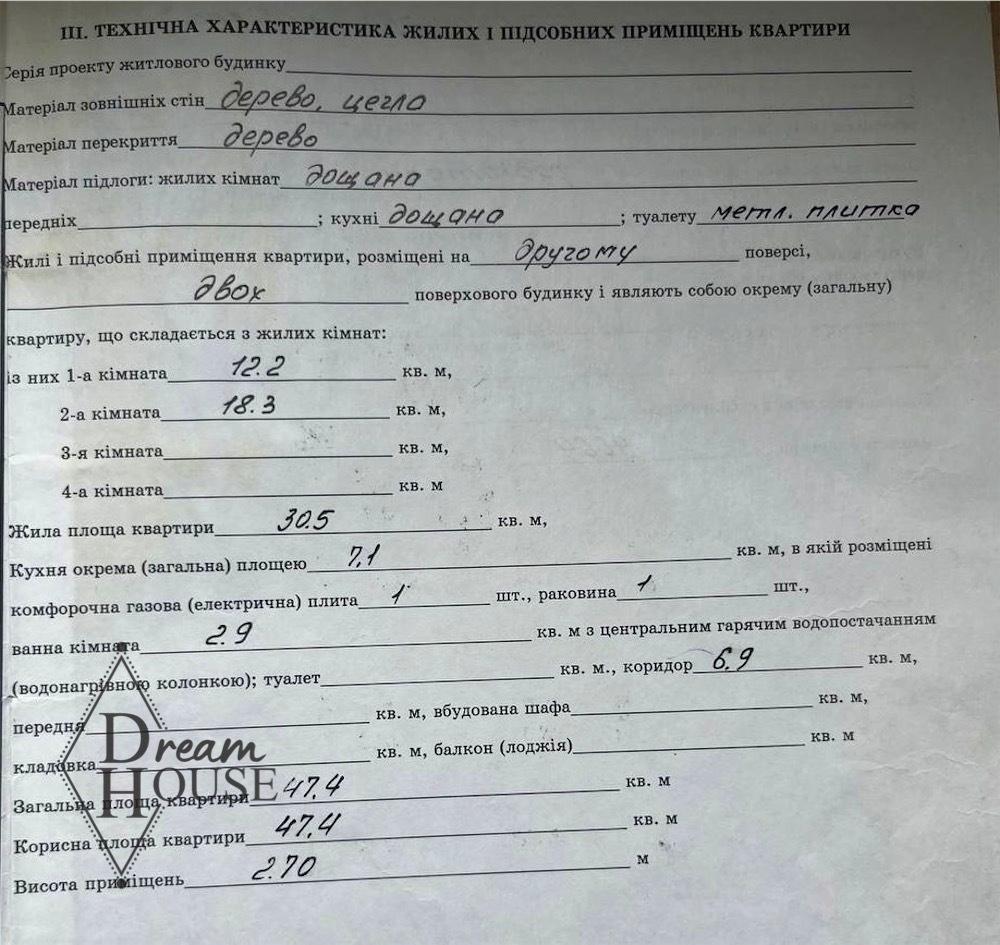 III. ТЕХНІЧНА ХАРАКТЕРИСТИКА ЖИЛИХ І ПІДСОБНИХ ПРИМІЩЕНЬ КВАРТИРИ
Серія проекту житлового будинку
Матеріал зовнішніх стін дерево, цегла
Матеріал перекриття дерево
Матеріал підлоги: жилих кімнат дощана
передніх ; кухні дощана ; туалету метл. плитка
Жилі і підсобні приміщення квартири, розміщені на другому поверсі,
двох поверхового будинку і являють собою окрему (загальну)
квартиру, що складається з жилих кімнат:
із них 1-а кімната 12.2 кв. м,
2-а кімната 18.3 кв. м,
3-я кімната кв. м,
4-а кімната кв. м
Жила площа квартири 30.5 кв. м,
Кухня окрема (загальна) площею 7,1 кв. м, в якій розміщені
комфорочна газова (електрична) плита 1 шт., раковина 1 шт.,
ванна кімната 2.9 кв. м з центральним гарячим водопостачанням
(водонагрівною колонкою); туалет кв. м., коридор 6,9 кв. м,
передня кв. м, вбудована шафа кв. м,
кладовка кв. м, балкон (лоджія) кв. м
Dream
HOUSE
Загальна площа квартири 47,4 кв. м
Корисна площа квартири 47,4 кв. м
Висота приміщень 2.70 м